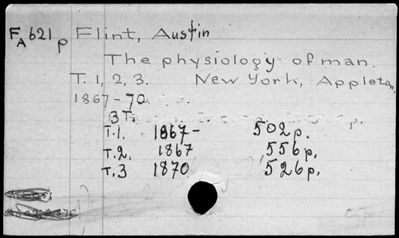 FA621p Flint, Austin
The physiology of man.
T. 1, 2, 3. New York, Appleton,
1867-70.
3 T.
T.1. 1867- 502 p.
T.2. 1867 556 p.
T.3 1870 526 p.